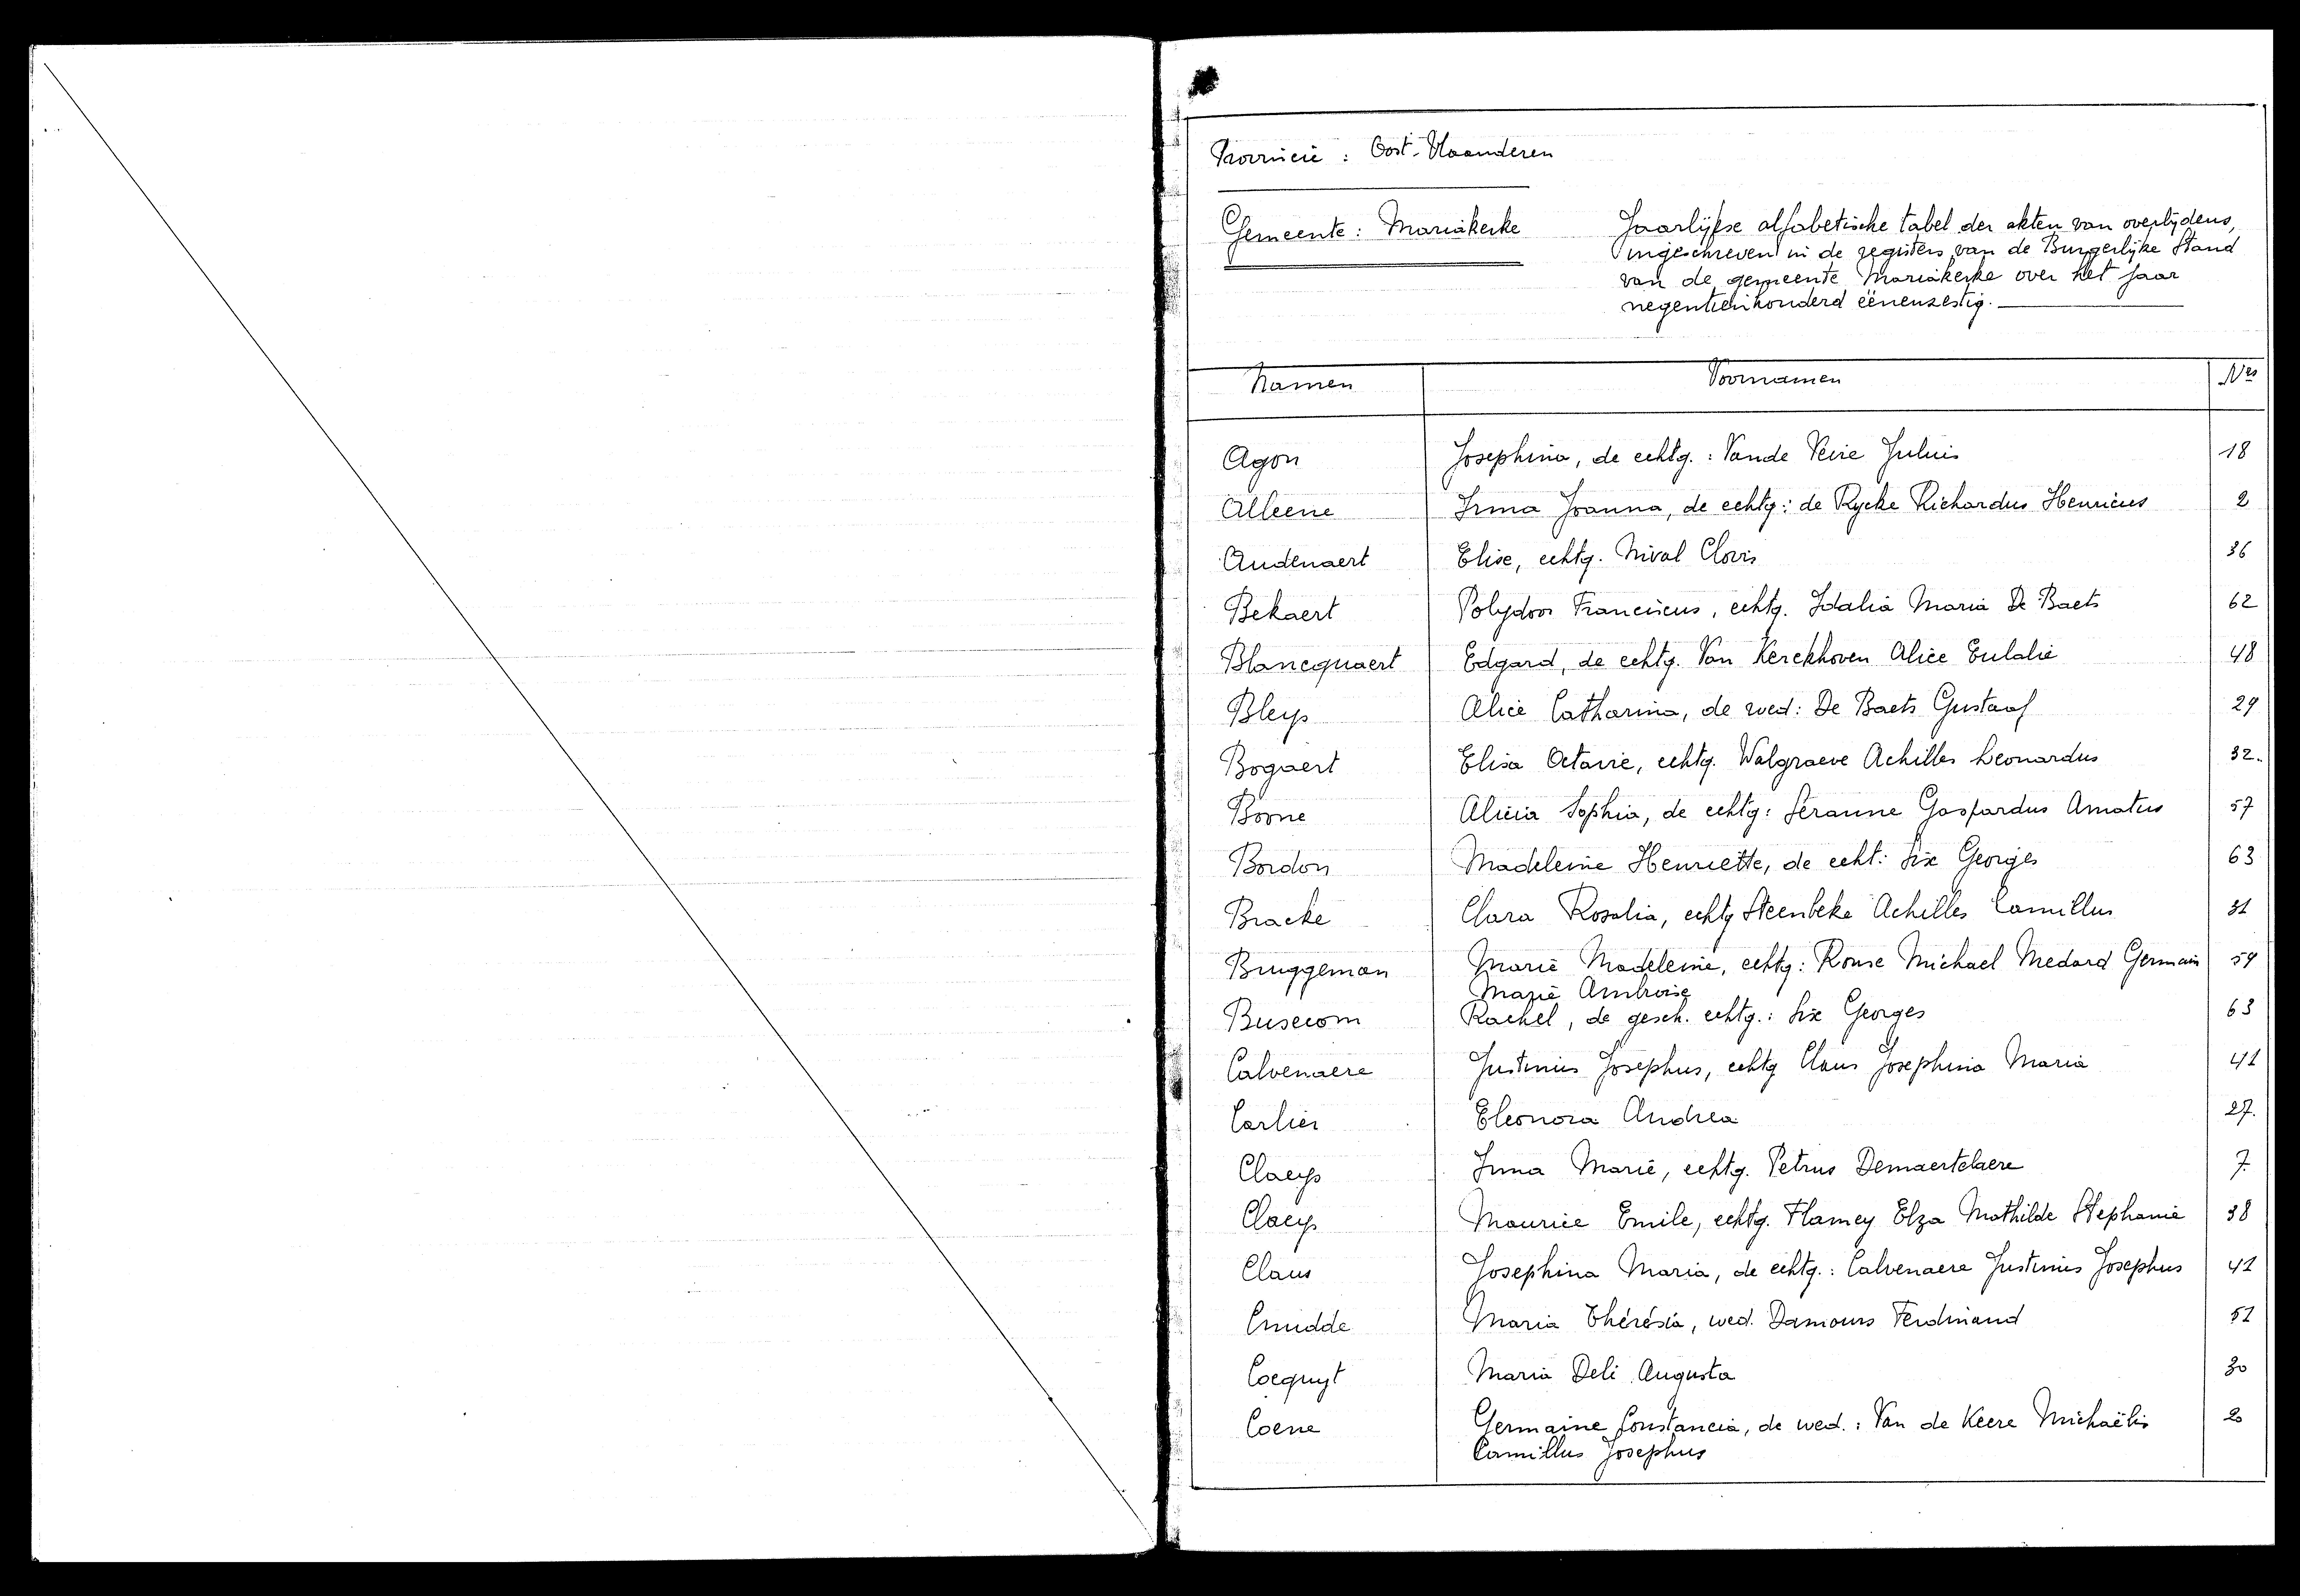 Provincie : Oost-Vlaanderen
Gemeente : Mariakerke
Jaarlijkse alfabetische tabel der akten van overlijdens,
ingeschreven in de registers van de Burgerlijke Stand
van de gemeente Mariakerke over het jaar
negentienhonderd éénenzestig.
Namen Voornamen Nrs
Agon Josephina, de echtg. : Vande Veire Julius 18
Alleene Irma Joanna, de echtg : de Rycke Richardus Henricus 2
Audenaert Elise, echtg. Nival Clovis 36
Bekaert Polydoor Franciscus, echtg. Idalia Maria De Baets 62
Blancquaert Edgard, de echtg. Van Kerckhoven Alice Eulalie 48
Bleys Alice Catharina, de wed : De Baets Gustaaf 29
Bogaert Elisa Octavie, echtg. Walgraeve Achilles Leonardus 32.
Boone Alicia Sophia, de echtg : Seranne Gaspardus Amatus 57
Bordon Madeleine Henriette, de echt : Six Georges 63
Bracke Clara Rosalia, echtg Steenbeke Achilles Camillus 31
Bruggeman Marie Madeleine, echtg : Ronse Michael Medard Germain 59
Marie Ambroise
Busecom Rachel, de gesch. echtg. : Six Georges 63
Calvenaere Justinus Josephus, echtg Claus Josephina Maria 41
Carlier Eleonora Andrea 27.
Claeys Irma Marie, echtg. Petrus Demaertelaere 7.
Claeys Maurice Emile, echtg. Flamey Elza Mathilde Stephanie 38
Claus Josephina Maria, de echtg. : Calvenaere Justinus Josephus 41
Cnudde Maria Thérésia, wed. Damours Ferdinand 51
Cocquyt Maria Deli Augusta 30
Coene Germaine Constancia, de wed. : Van de Keere Michaëlis 20
Camillus Josephus